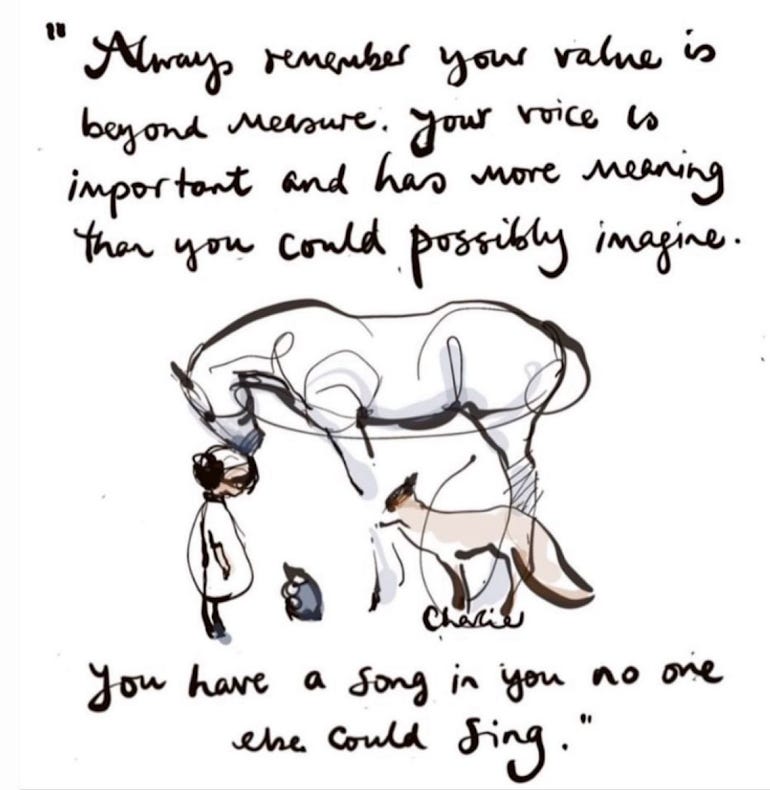 "Always remember your value is
beyond measure. Your voice is
important and has more meaning
than you could possibly imagine.
Charlie
You have a song in you no one
else could sing."